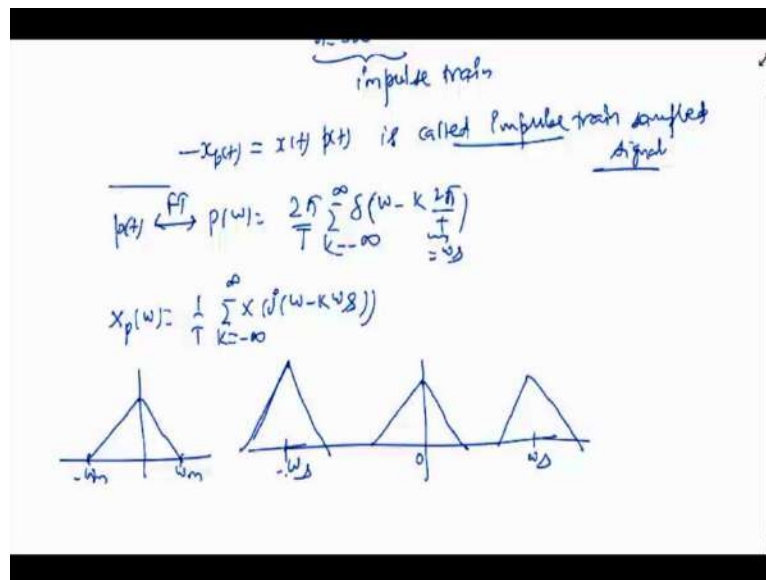 impulse train
- xp(t) = x(t) p(t) is called impulse train sampled
signal
p(t) FT ↔ P(w) = 2π/T ∑ k=-∞ ∞ δ(w - k 2π/T)
= ws
Xp(w) = 1/T ∑ k=-∞ ∞ X(j(w - kws))
-wm wm -ws 0 ws